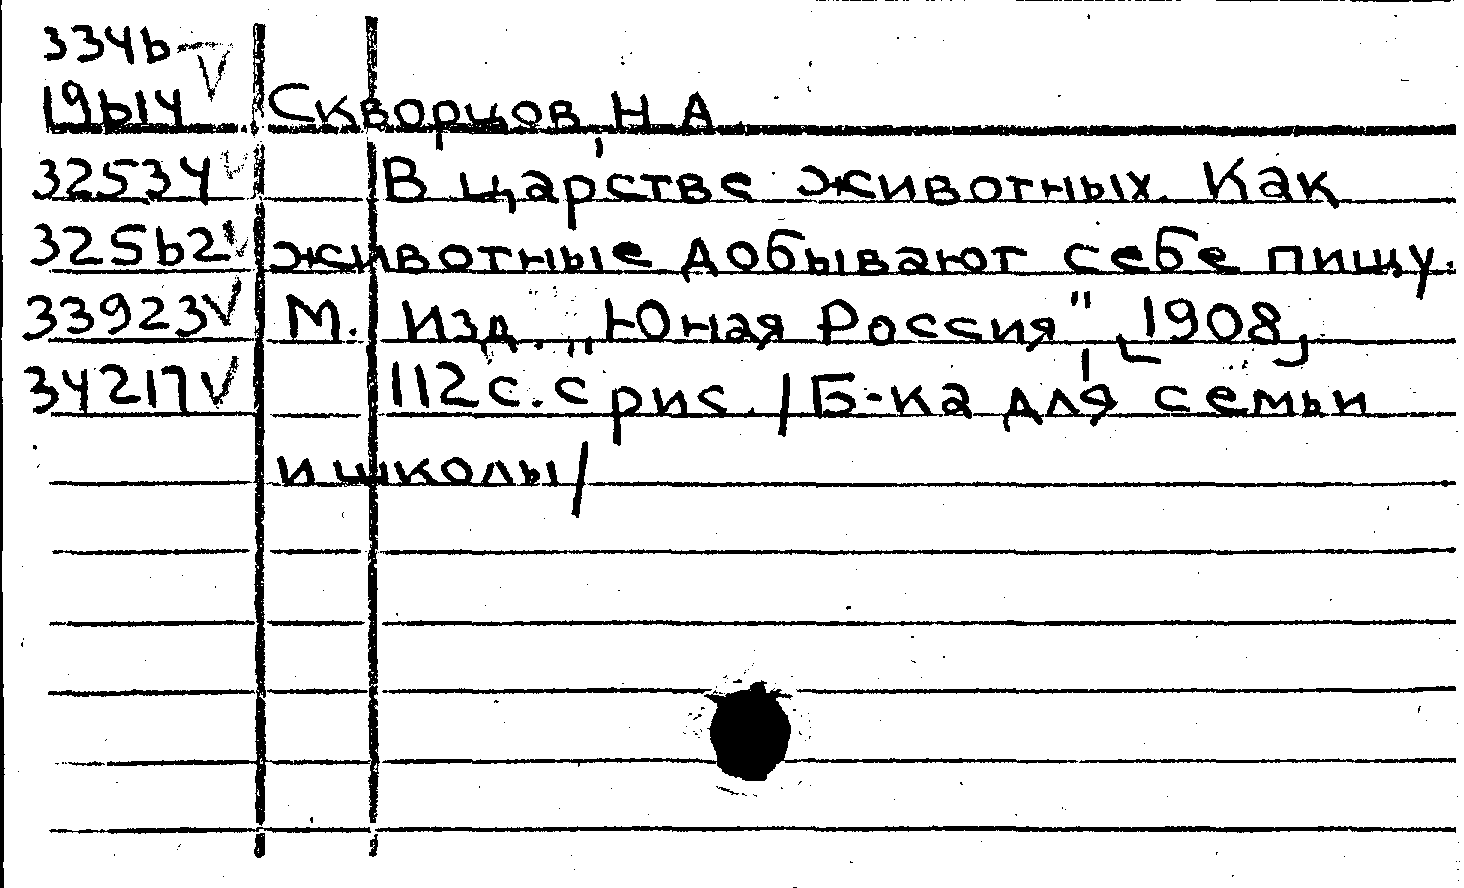 3346 V
19614 Скворцов, Н А
32534 V В царстве животных. Как
32562 V животные добывают себе пищу.
33923 V М. Изд. „Юная Россия", 1908,
34217 V 112 с. с рис. /Б-ка для семьи
и школы/